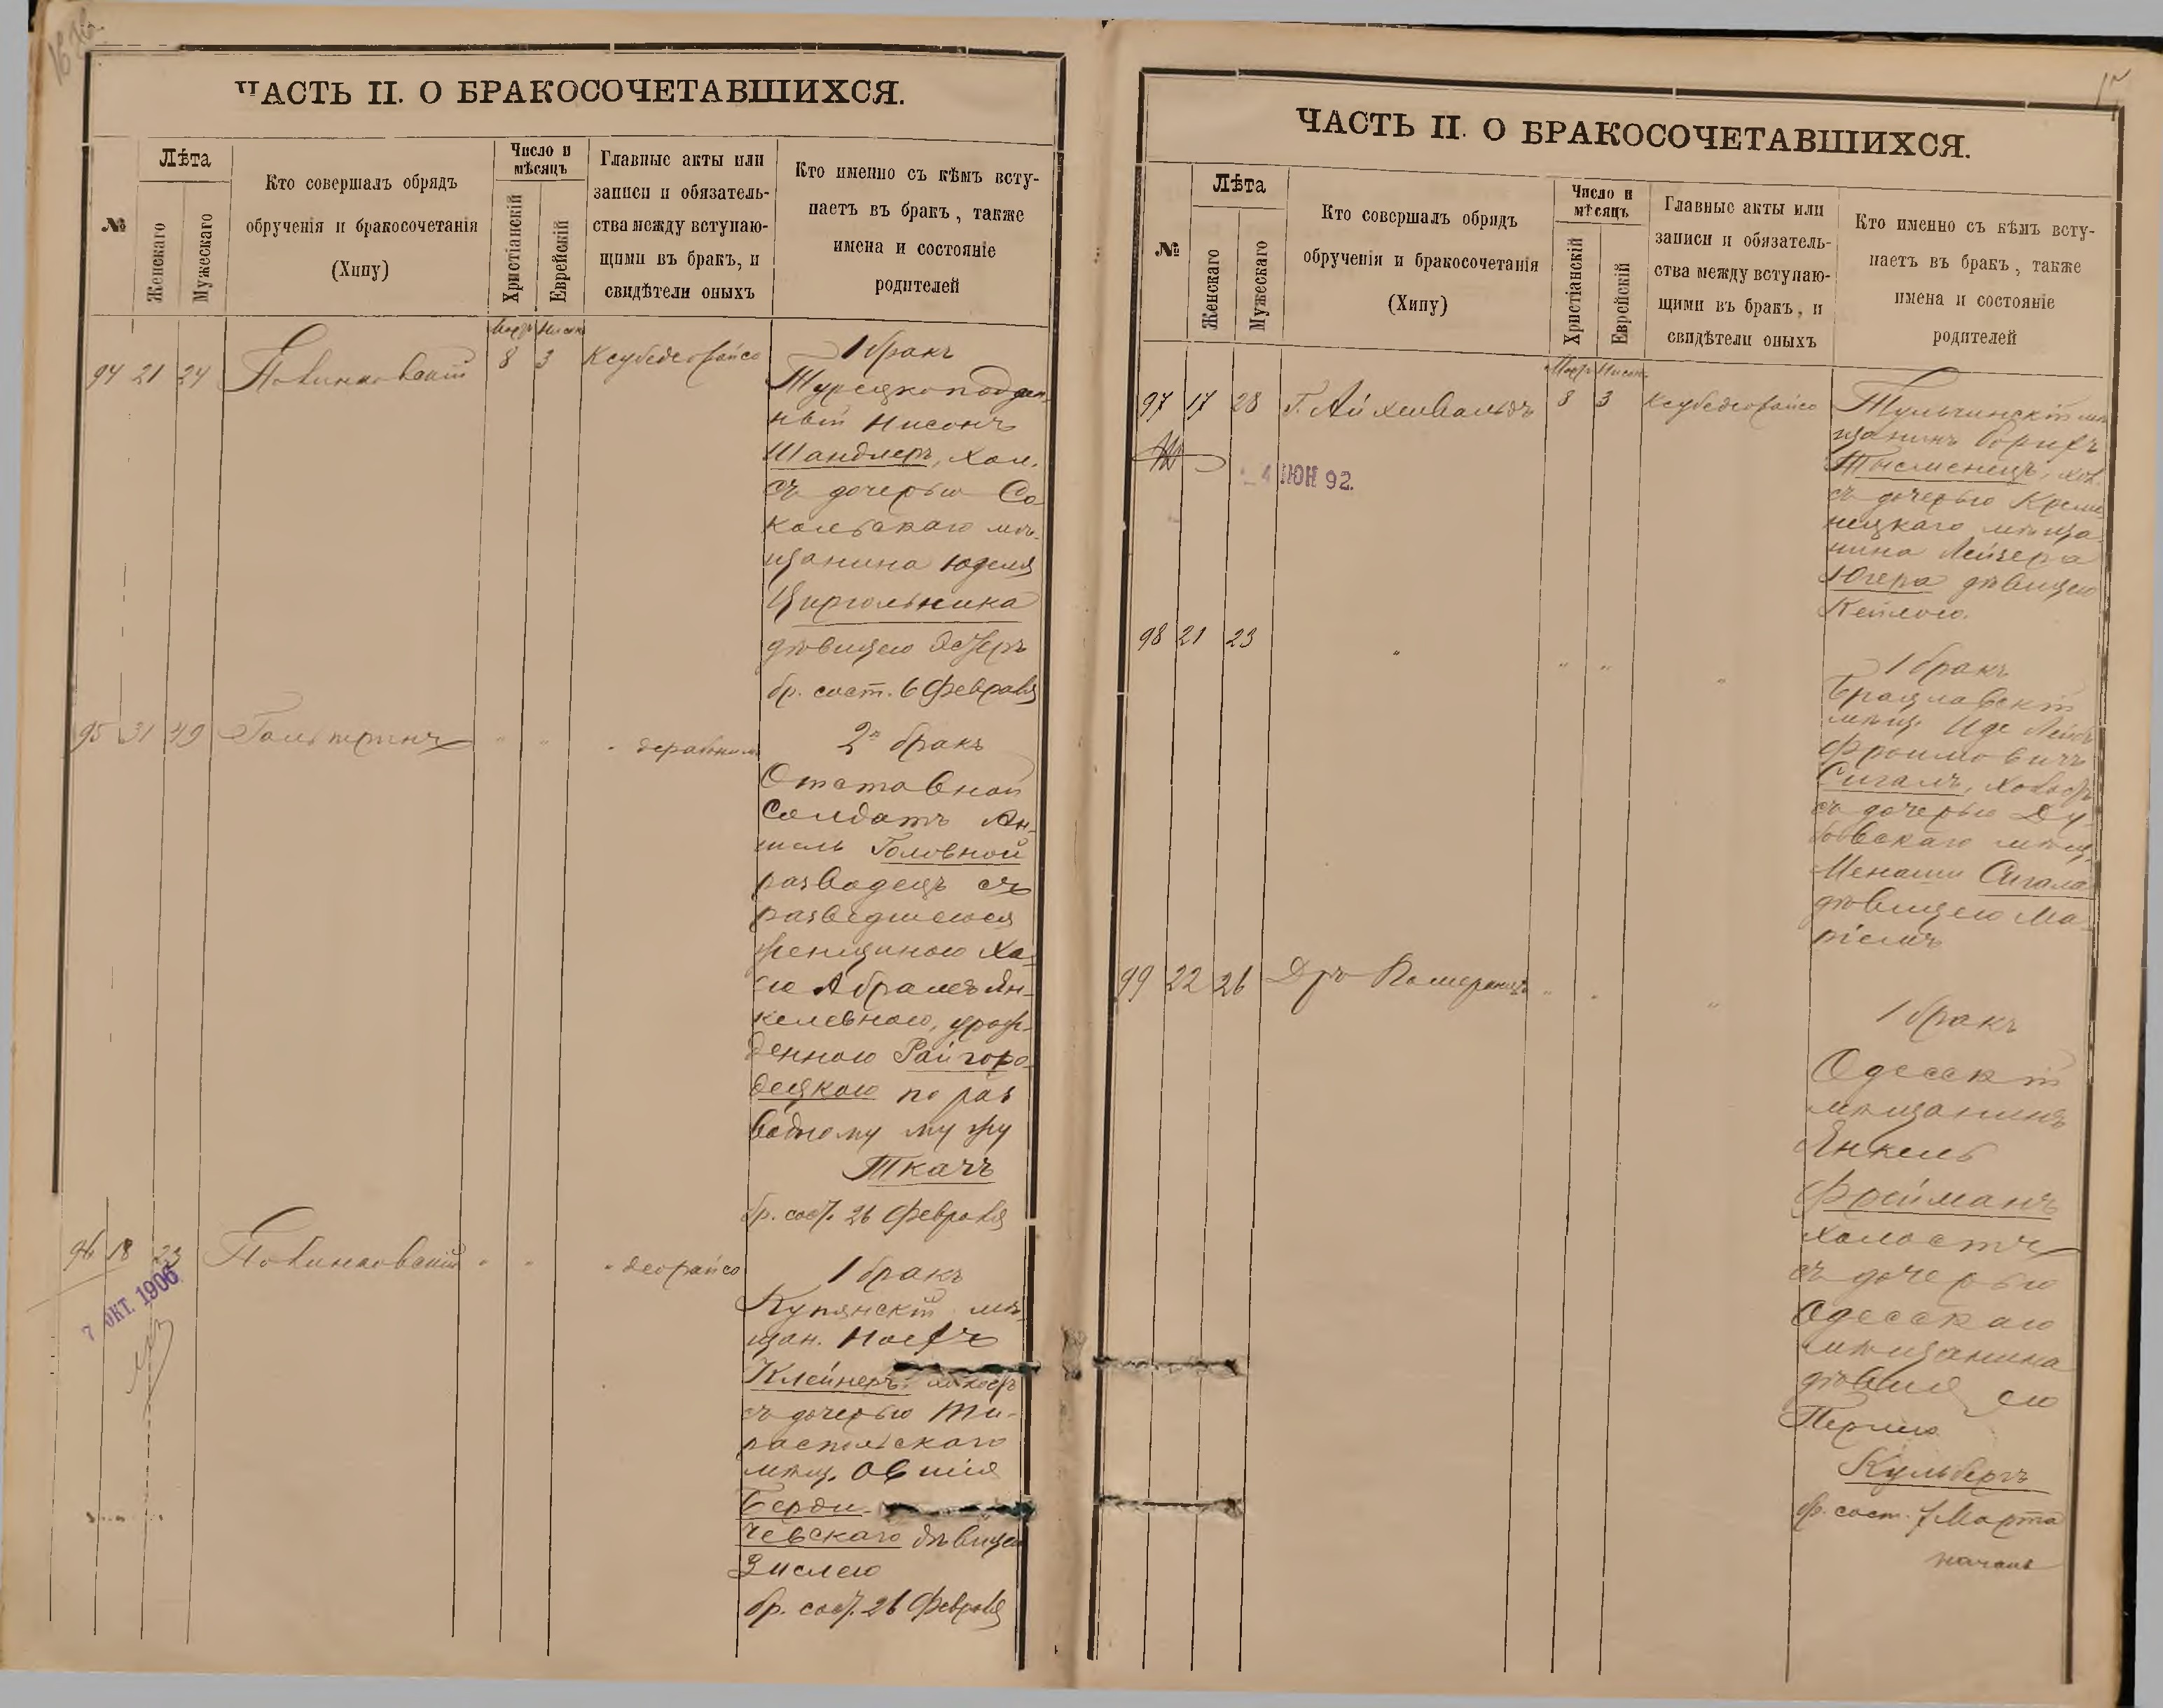 ЧАСТЬ II. О БРАКОСОЧЕТАВШИХСЯ.
№
Лѣта
Женскаго
Мужескаго
Кто совершалъ обрядъ
обрученія и бракосочетанія
(Хипу)
Число и
мѣсяцъ
Христіанскій
Еврейскій
Главные акты или
записи и обязатель-
ства между вступаю-
щими въ бракъ, и
свидѣтели оныхъ
Кто именно съ кѣмъ всту-
паетъ въ бракъ, также
имена и состояніе
родителей
Мартъ Нисонъ
94 21 24
8 3
1 бракъ
Турецкоподдан-
ный Нисонъ
Шандлеръ, хол.
съ дочерью Со
кольскаго мѣ-
щанина Юделя
Цирюльника
дѣвицею Эстеръ
бр. сост. 6 Февраля
95 31 49 Гальперинъ " " "
2й бракъ
Отставной
Солдатъ Ан-
шель Головной
разводецъ съ
разведшеюся
женщиною Ха-
ею Абрамъ Ян-
келевною, урож-
денною Райгоро-
децкою по раз
водному мужу
Ткачъ
бр. сост. 26 Февраля
96 18 23 " " "
7 ОКТ. 1906
1 бракъ
Купянскій мѣ-
щан. Иосифъ
Клейнеръ, холост
съ дочерью Ти-
распольскаго
мѣщ. Овшія
Берди-
чевскаго дѣвицею
Зислею
бр. сост. 26 Февраля
ЧАСТЬ II. О БРАКОСОЧЕТАВШИХСЯ.
№
Лѣта
Женскаго
Мужескаго
Кто совершалъ обрядъ
обрученія и бракосочетанія
(Хипу)
Число и
мѣсяцъ
Христіанскій
Еврейскій
Главные акты или
записи и обязатель-
ства между вступаю-
щими въ бракъ, и
свидѣтели оныхъ
Кто именно съ кѣмъ всту-
паетъ въ бракъ, также
имена и состояніе
родителей
Мартъ Нисонъ
97 17 28 Г. Айхенвальдъ 8 3
4 ИЮН 92.
Тульчинскій мѣ
щанинъ Борихъ
Тысменецъ, хол.
съ дочерью Креме
нецкаго мѣща-
нина Лейзера
Югера дѣвицею
Кейлою.
98 21 23 " " " "
1 бракъ
Брацлавскій
мѣщ. Иде Лейбъ
Фроимовичъ
Сигалъ, холост
съ дочерью Ду-
бовскаго мѣщ.
Менаши Сигала
дѣвицею Ма-
ріемъ
99 22 26 Д-ръ Померанцъ " " "
1 бракъ
Одесскій
мѣщанинъ
Янкель
Фрейманъ
холостъ
съ дочерью
Одесскаго
мѣщанина
дѣвицею
Перлею
Кульбергъ
бр. сост. 7 Марта